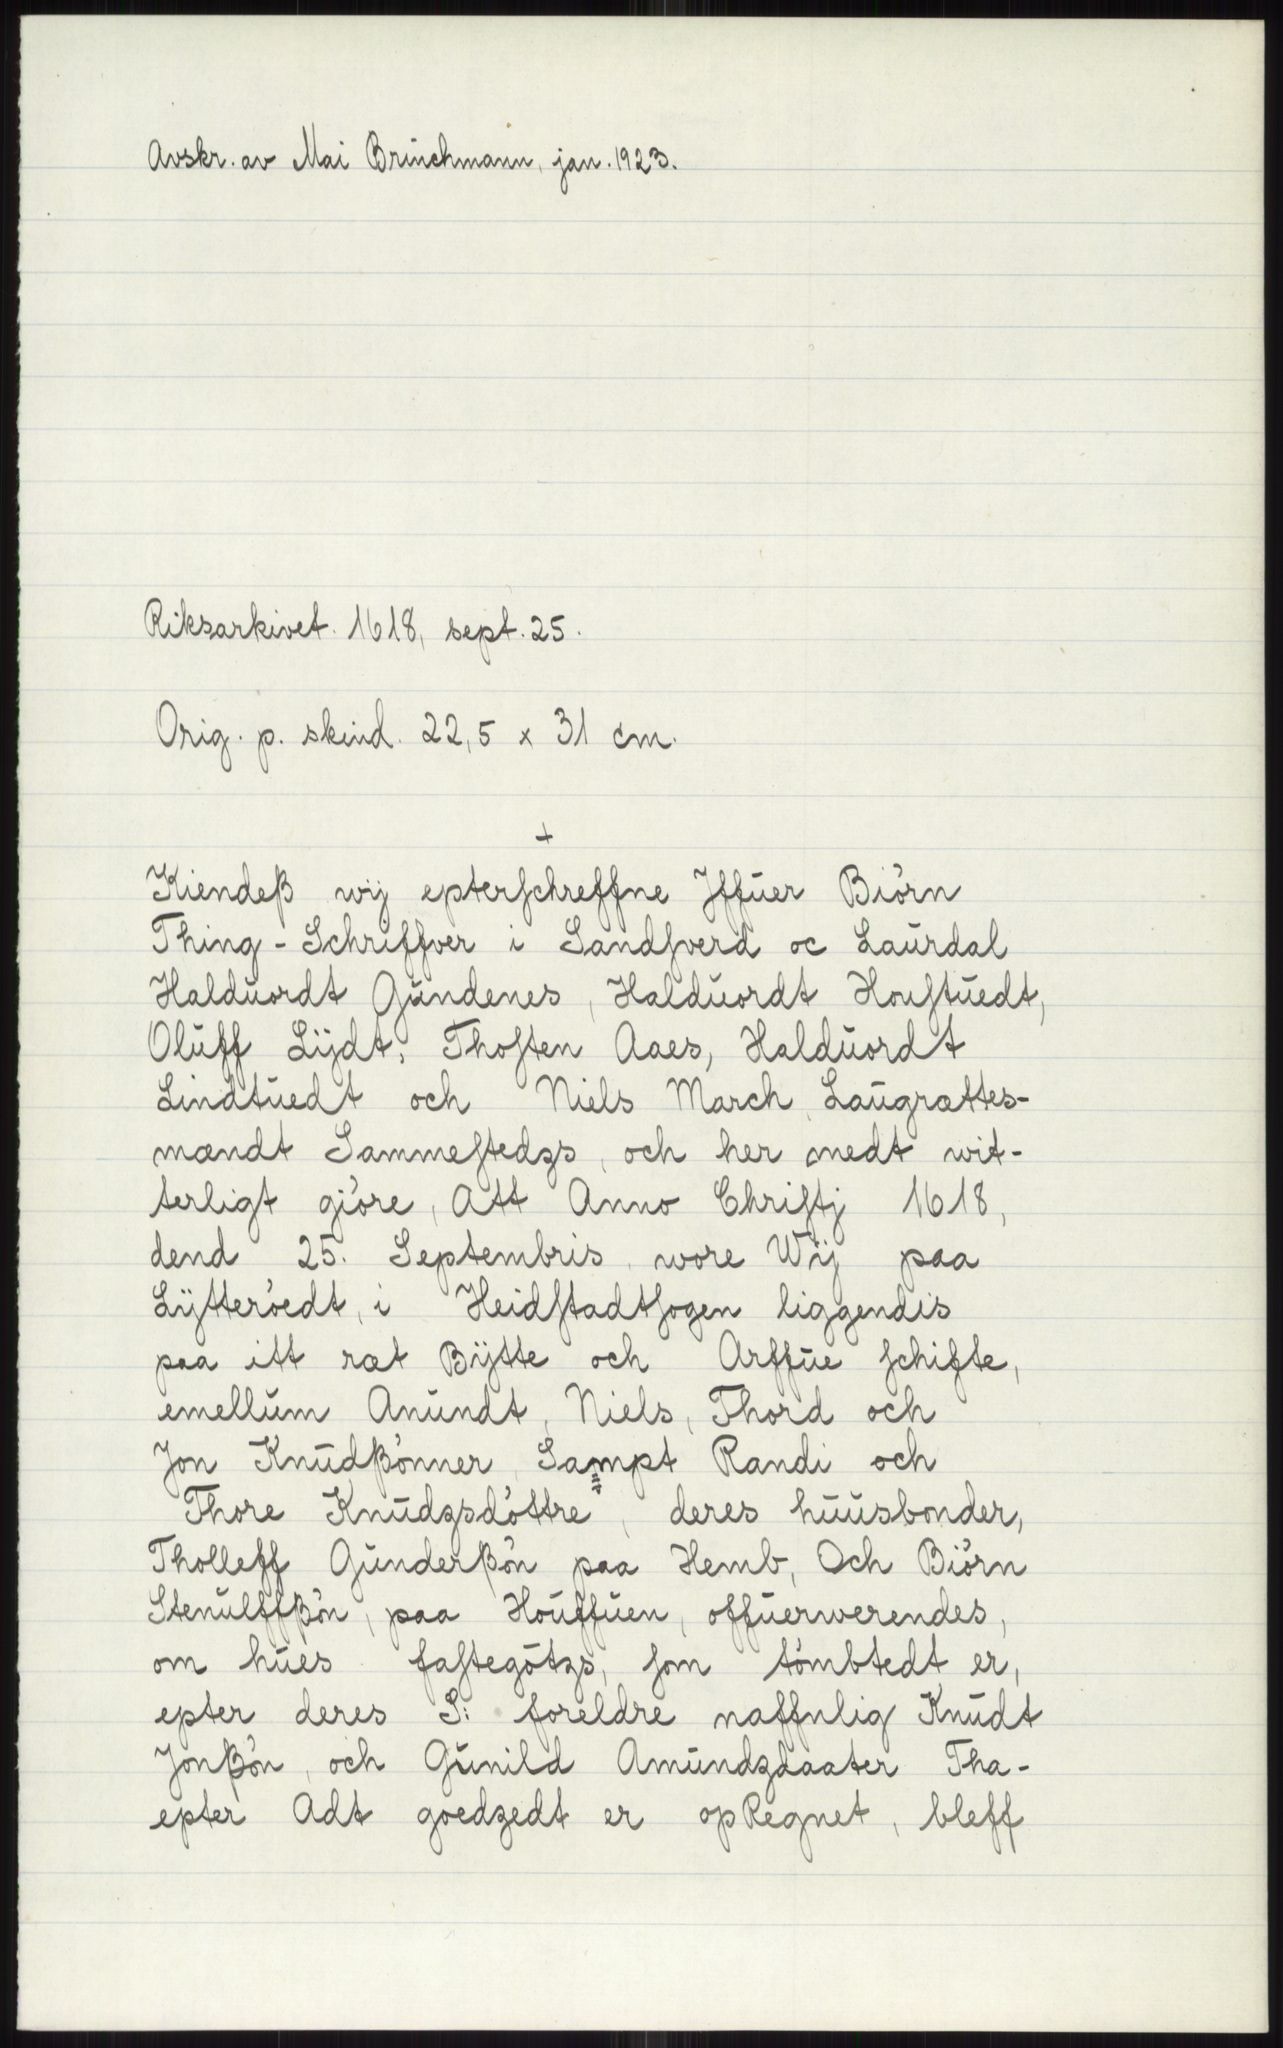 Avskr. av Mai Brŭnchmann, jan. 1923.
Riksarkivet. 1618, sept. 25.
Orig. p. skind. 22,5 x 31 cm.
+
Kiendeß wij epterſchreffne Jffŭer Biörn
Thing-Schriffver i Sandſverd oc Laŭrdal
Haldŭordt Gŭndenes, Haldŭordt Hoŭſtŭedt,
Olŭff Lÿdt, Thoſten Aaes, Haldŭordt
Lindtŭedt och Niels March, Laŭgrættes-
mændt Sammeſtedzs, och her medt wit-
terligt giöre, Att Anno Chriſtj 1618,
dend 25. Septembris wore Wÿ paa
Lÿtteröedt, i Heidſtadtſogen liggendis
paa itt ræt Bÿtte och Arffŭe ſchifte,
emellŭm Anŭndt, Niels, Thord och
Jon Knŭdßönner, Sampt Randi och
Thore Knŭdzsdöttre, deres hŭŭsbonder,
Tholleff Gŭnderßön paa Hemb, Och Biörn
Stenŭlffßön, paa Hoŭffŭen, offŭerwerendes,
om hŭes faſtegötzs, ſom tömbtedt er,
epter deres S: foreldre naffnlig Knŭdt
Jonßön, och Gŭnild Amŭndzdaater Tha-
epter Adt goedzedt er opRegnet, bleff